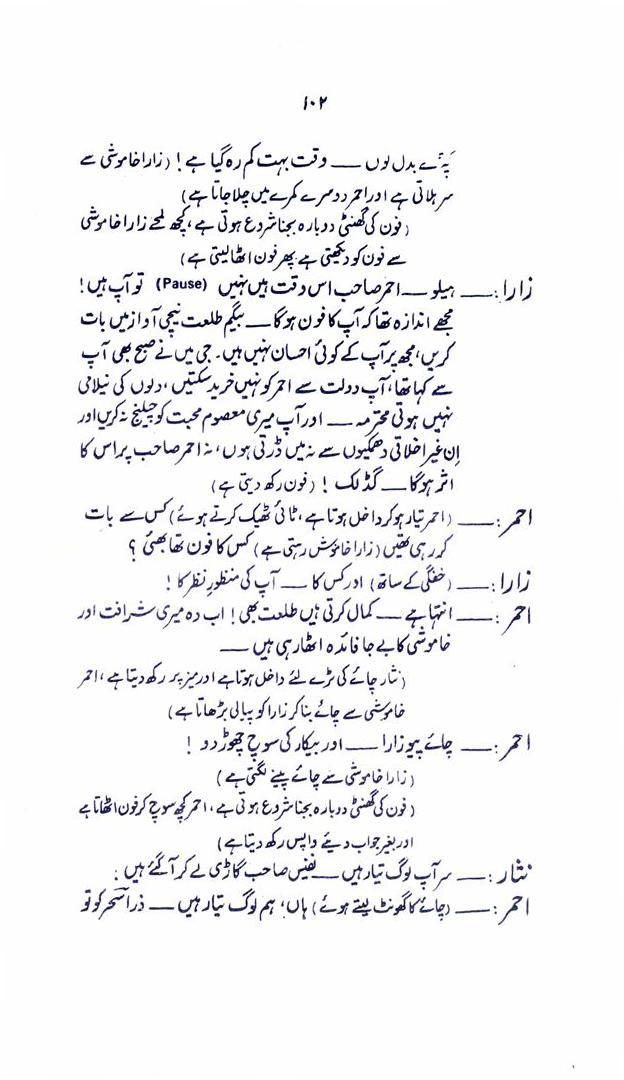 ۱۰۲
کپڑے بدل لوں ــــ وقت بہت کم رہ گیا ہے ! (زارا خاموشی سے
سر ہلاتی ہے اور احمر دوسرے کمرے میں چلا جاتا ہے)
(فون کی گھنٹی دوبارہ بجنا شروع ہوتی ہے، کچھ لمحے زارا خاموشی
سے فون کو دیکھتی ہے پھر فون اٹھا لیتی ہے)
زارا: ــــ ہیلو ــــ احمر صاحب اس وقت ہیں نہیں (Pause) تو آپ ہیں!
مجھے اندازہ تھا کہ آپ کا فون ہوگا ــــ بیگم طلعت نیچی آواز میں بات
کریں، مجھ پر آپ کے کوئی احسان نہیں ہیں۔ جی میں نے صبح بھی آپ
سے کہا تھا، آپ دولت سے احمر کو نہیں خرید سکتیں، دلوں کی نیلامی
نہیں ہوتی محترمہ ــــ اور آپ میری معصوم محبت کو چیلنج نہ کریں اور
اِن غیر اخلاقی دھمکیوں سے نہ میں ڈرتی ہوں، نہ احمر صاحب پر اس کا
اثر ہوگا ــــ گڈ لک ! (فون رکھ دیتی ہے)
احمر: ــــ (احمر تیار ہو کر داخل ہوتا ہے، ٹائی ٹھیک کرتے ہوئے) کس سے بات
کر رہی تھیں (زارا خاموش رہتی ہے) کس کا فون تھا بھئی ؟
زارا: ــــ (خفگی کے ساتھ) اور کس کا ــــ آپ کی منظورِ نظر کا !
احمر: ــــ انتہا ہے ــــ کمال کرتی ہیں طلعت بھی ! اب وہ میری شرافت اور
خاموشی کا بے جا فائدہ اٹھا رہی ہیں ــــ
(نثار چائے کی ٹرے لئے داخل ہوتا ہے اور میز پر رکھ دیتا ہے، احمر
خاموشی سے چائے بنا کر زارا کو پیالی بڑھاتا ہے)
احمر: ــــ چائے پیو زارا ــــ اور بیکار کی سوچ چھوڑ دو !
(زارا خاموشی سے چائے پینے لگتی ہے)
(فون کی گھنٹی دوبارہ بجنا شروع ہوتی ہے، احمر کچھ سوچ کر فون اٹھاتا ہے
اور بغیر جواب دیئے واپس رکھ دیتا ہے)
نثار: ــــ سر آپ لوگ تیار ہیں ــــ نفیس صاحب گاڑی لے کر آ گئے ہیں:
احمر: ــــ (چائے کا گھونٹ لیتے ہوئے) ہاں، ہم لوگ تیار ہیں ــــ ذرا سحر کو تو